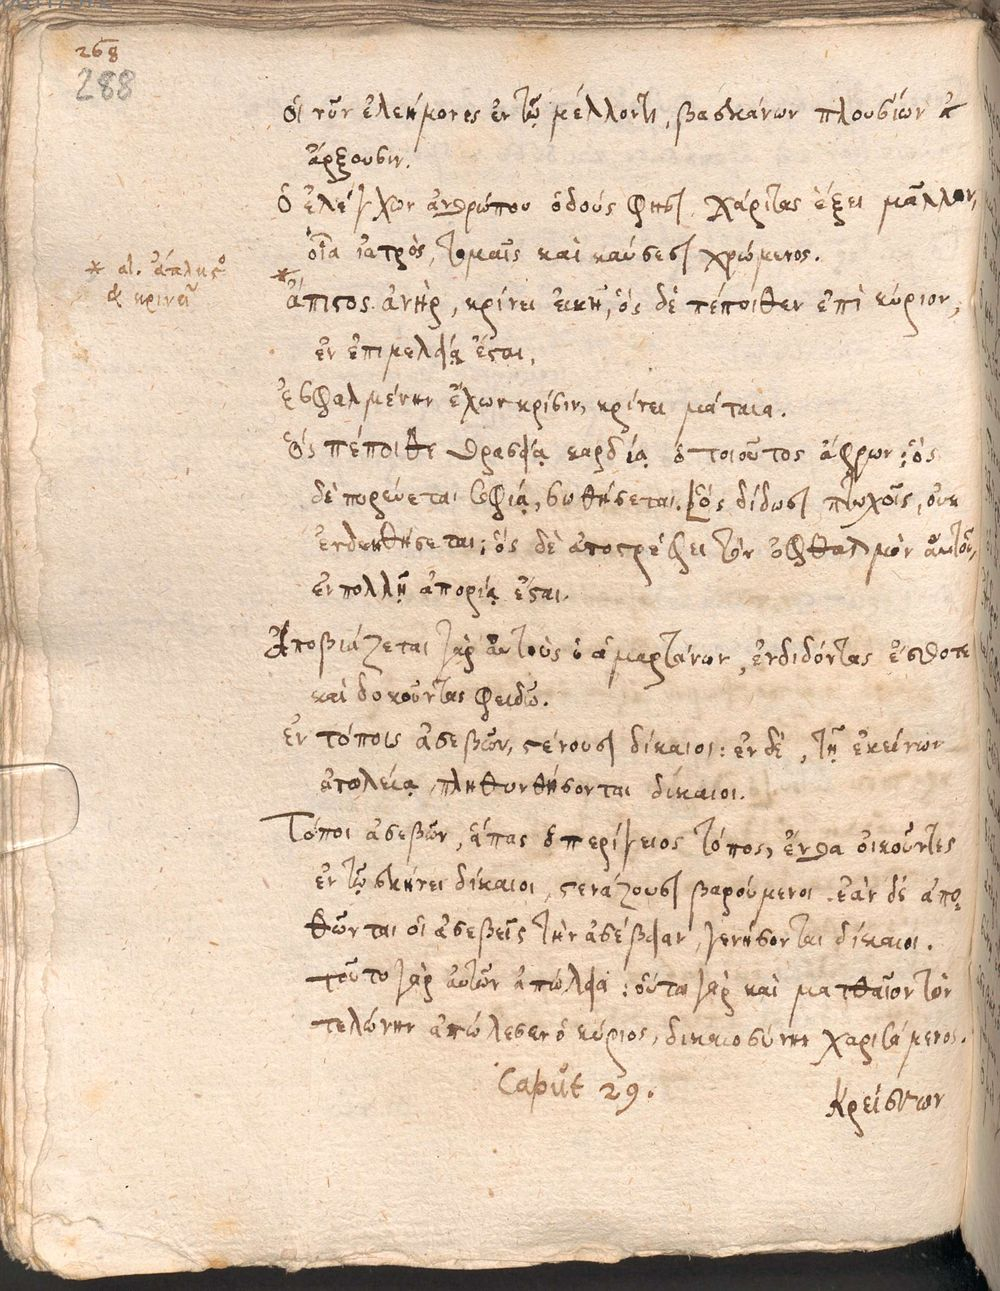 268
288
οἱ νῦν ἐλεήμονες ἐν τῷ μέλλοντι, βασκάνων πλουσίων
ἄρξουσιν.
ὁ ἐλέγχων ἀνθρώπου ὁδούς φησι χάριτας ἕξει μᾶλλον,
οἷα ἰατρὸς, τομαῖς καὶ καύσεσι χρώμενος.
* al. ἄπληστος
& κρινεῖ
* ἄπιστος ἀνὴρ, κρίνει εἰκῆ, ὁς δὲ πέποιθεν ἐπὶ κύριον,
ἐν ἐπιμελείᾳ ἔσται.
ἐσφαλμένην ἔχων κρίσιν, κρίνει μάταια.
ὁς πέποιθε θρασείᾳ καρδίᾳ ὁ τοιοῦτος ἄφρων; ὁς
δὲ πορεύεται σοφίᾳ, σωθήσεται. ὁς δίδωσι πτωχοῖς, οὐκ
ἐνδεηθήσεται; ὁς δὲ ἀποστρέφει τὸν ὀφθαλμὸν αὐτοῦ,
ἐν πολλῇ ἀπορίᾳ ἔσται.
Ἀποβιάζεται γὰρ αὐτοὺς ὁ ἁμαρτάνων, ἐνδιδόντας ἔσθοτε
καὶ δοκοῦντας φειδώ.
ἐν τόποις ἀσεβῶν, στένουσι δίκαιοι: ἐν δὲ, τῇ ἐκείνων
ἀπωλείᾳ, πληθυνθήσονται δίκαιοι.
Τόποι ἀσεβῶν, ἅπας ὁ περίγειος τόπος, ἔνθα οἰκοῦντες
ἐν τῷ σκήνει δίκαιοι, στενάζουσι βαρούμενοι. ἐὰν δὲ ἀπο-
θῶνται οἱ ἀσεβεῖς τὴν ἀσέβειαν, γενήσονται δίκαιοι.
τοῦτο γὰρ αὐτῶν ἀπώλεια: οὕτω γὰρ καὶ ματθαῖον τὸν
τελώνην ἀπώλεσεν ὁ κύριος, δικαιοσύνην χαρισάμενος.
Caput 29.
κρείσσων